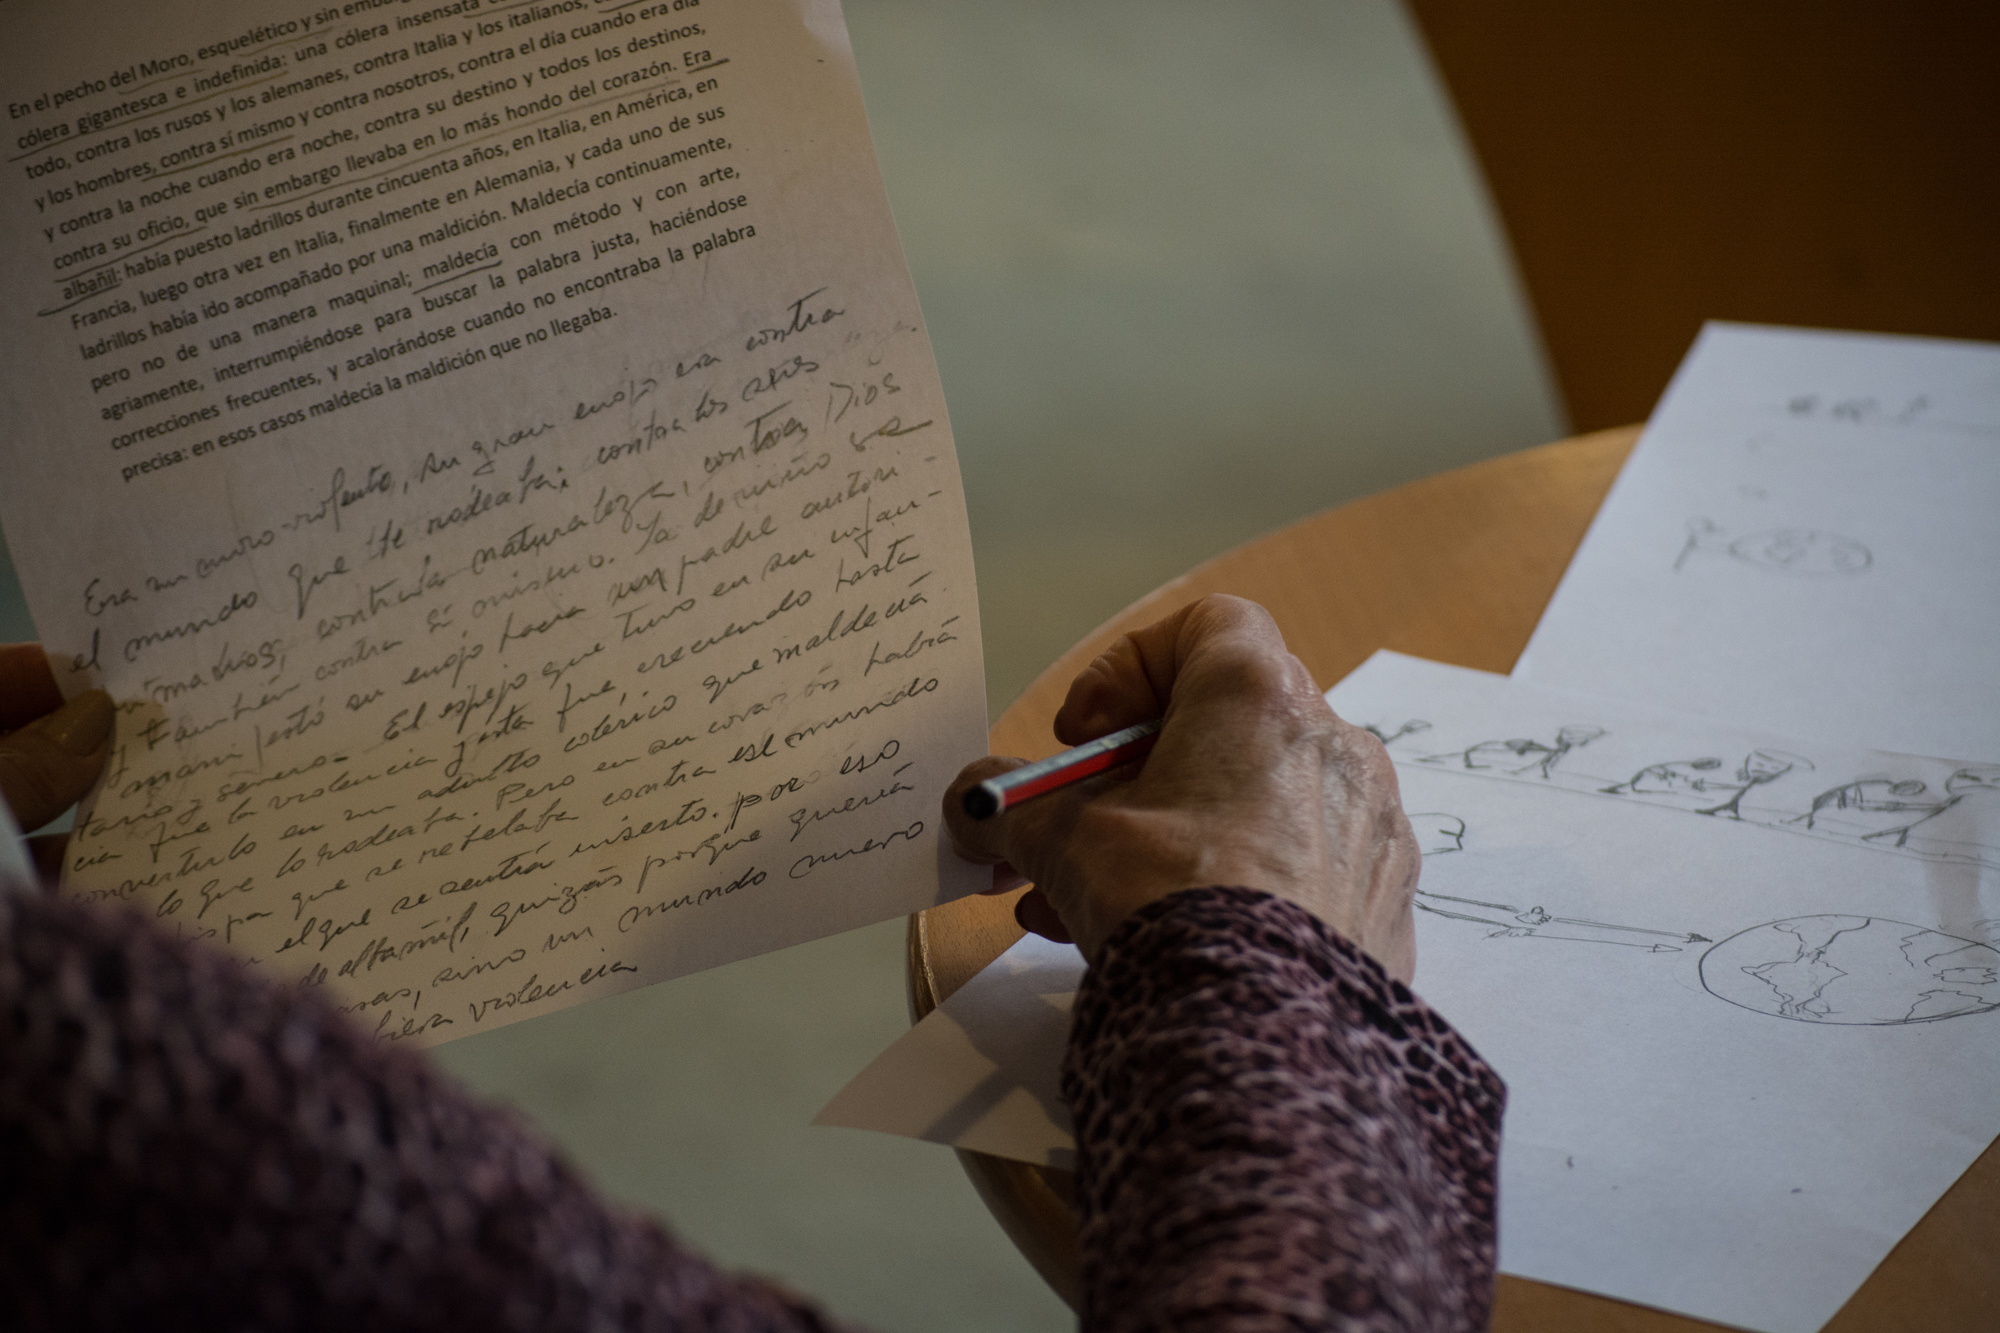 En el pecho del Moro, esquelético y sin
cólera gigantesca e indefinida: una cólera insensata
todo, contra los rusos y los alemanes, contra Italia y los italianos,
y los hombres, contra sí mismo y contra nosotros, contra el día cuando era día
y contra la noche cuando era noche, contra su destino y todos los destinos,
contra su oficio, que sin embargo llevaba en lo más hondo del corazón. Era
albañil: había puesto ladrillos durante cincuenta años, en Italia, en América, en
Francia, luego otra vez en Italia, finalmente en Alemania, y cada uno de sus
ladrillos había ido acompañado por una maldición. Maldecía continuamente,
pero no de una manera maquinal; maldecía con método y con arte,
agriamente, interrumpiéndose para buscar la palabra justa, haciéndose
correcciones frecuentes, y acalorándose cuando no encontraba la palabra
precisa: en esos casos maldecía la maldición que no llegaba.
Era un violento, su gran enojo era contra
el mundo que le rodeaba; contra los
contra la naturaleza, contra Dios
y también contra sí mismo. Ya de niño
manifestó su enojo hacia un padre autori-
tario y severo. El espejo que tuvo en su infan-
cia fue la violencia y esta fue, creciendo hasta
convertirlo en un adulto colérico que maldecía
lo que lo rodeaba. Pero en su corazón habría
que se rebelaba contra ese mundo
el que se sentía inserto. por eso
de albañil, quizás porque quería
casas, sino un mundo nuevo
violencia